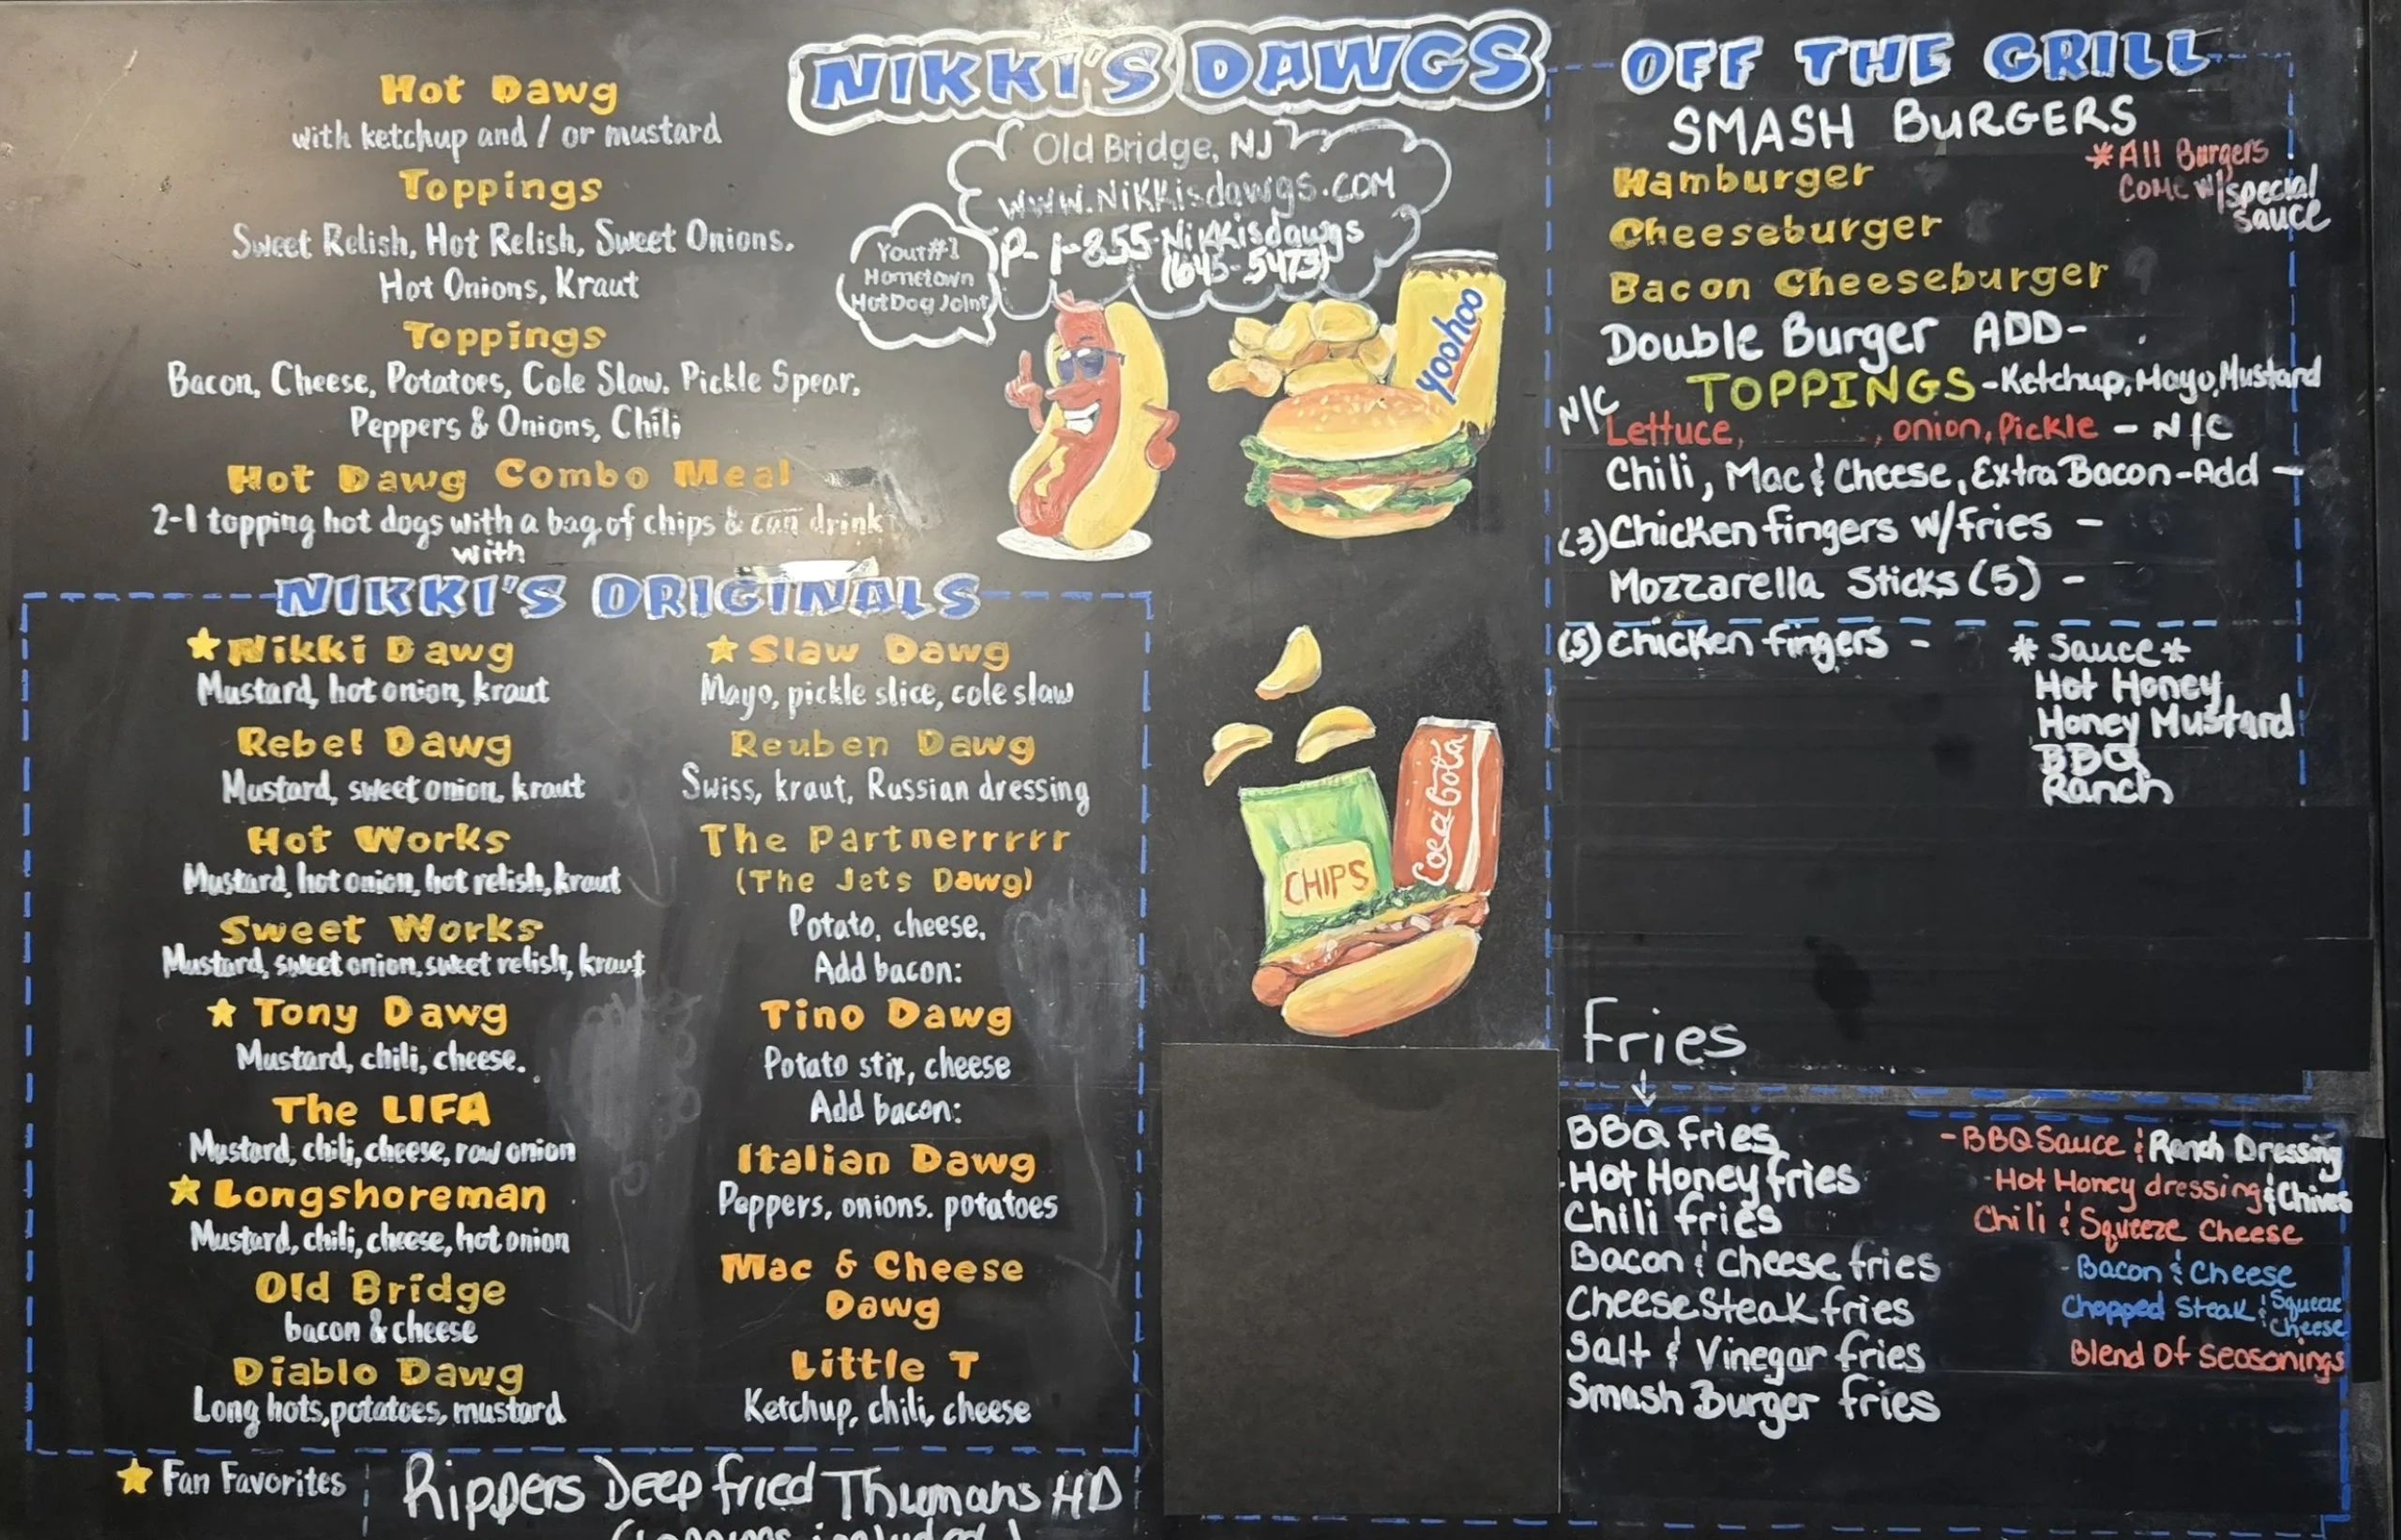 NIKKI'S DAWGS
Old Bridge, NJ
www.Nikkisdawgs.com
P- 1-855-Nikkisdawgs
(645-5473)
Your #1
Hometown
Hot Dog Joint
Hot Dawg
with ketchup and / or mustard
Toppings
Sweet Relish, Hot Relish, Sweet Onions.
Hot Onions, Kraut
Toppings
Bacon, Cheese, Potatoes, Cole Slaw. Pickle Spear,
Peppers & Onions, Chili
Hot Dawg Combo Meal
2-1 topping hot dogs with a bag of chips & can drink
with
NIKKI'S ORIGINALS
Nikki Dawg
Mustard, hot onion, kraut
Rebel Dawg
Mustard, sweet onion, kraut
Hot Works
Mustard, hot onion, hot relish, kraut
Sweet Works
Mustard, sweet onion, sweet relish, kraut
Tony Dawg
Mustard, chili, cheese.
The LIFA
Mustard, chili, cheese, raw onion
Longshoreman
Mustard, chili, cheese, hot onion
Old Bridge
bacon & cheese
Diablo Dawg
Long hots, potatoes, mustard
Slaw Dawg
Mayo, pickle slice, cole slaw
Reuben Dawg
Swiss, kraut, Russian dressing
The Partnerrrrr
(The Jets Dawg)
Potato, cheese,
Add bacon:
Tino Dawg
Potato stix, cheese
Add bacon:
Italian Dawg
Peppers, onions. potatoes
Mac & Cheese
Dawg
Little T
Ketchup, chili, cheese
Fan Favorites
Rippers Deep fried Thumans HD
yoohoo
CHIPS
Coca Cola
OFF THE GRILL
SMASH BURGERS
*All Burgers
Come w/special
sauce
Hamburger
Cheeseburger
Bacon Cheeseburger
Double Burger ADD-
TOPPINGS -Ketchup, Mayo, Mustard
N/C
Lettuce, , onion, Pickle - N/C
Chili, Mac & Cheese, Extra Bacon-Add -
(3) Chicken fingers w/fries -
Mozzarella Sticks (5) -
(5) Chicken fingers -
* Sauce *
Hot Honey
Honey Mustard
BBQ
Ranch
Fries
BBQ fries -BBQ Sauce & Ranch Dressing
Hot Honey fries -Hot Honey dressing & Chives
Chili fries Chili & Squeeze Cheese
Bacon & Cheese fries -Bacon & Cheese
CheeseSteak fries Chopped Steak & Squeeze
Cheese
Salt & Vinegar fries Blend Of Seasonings
Smash Burger fries